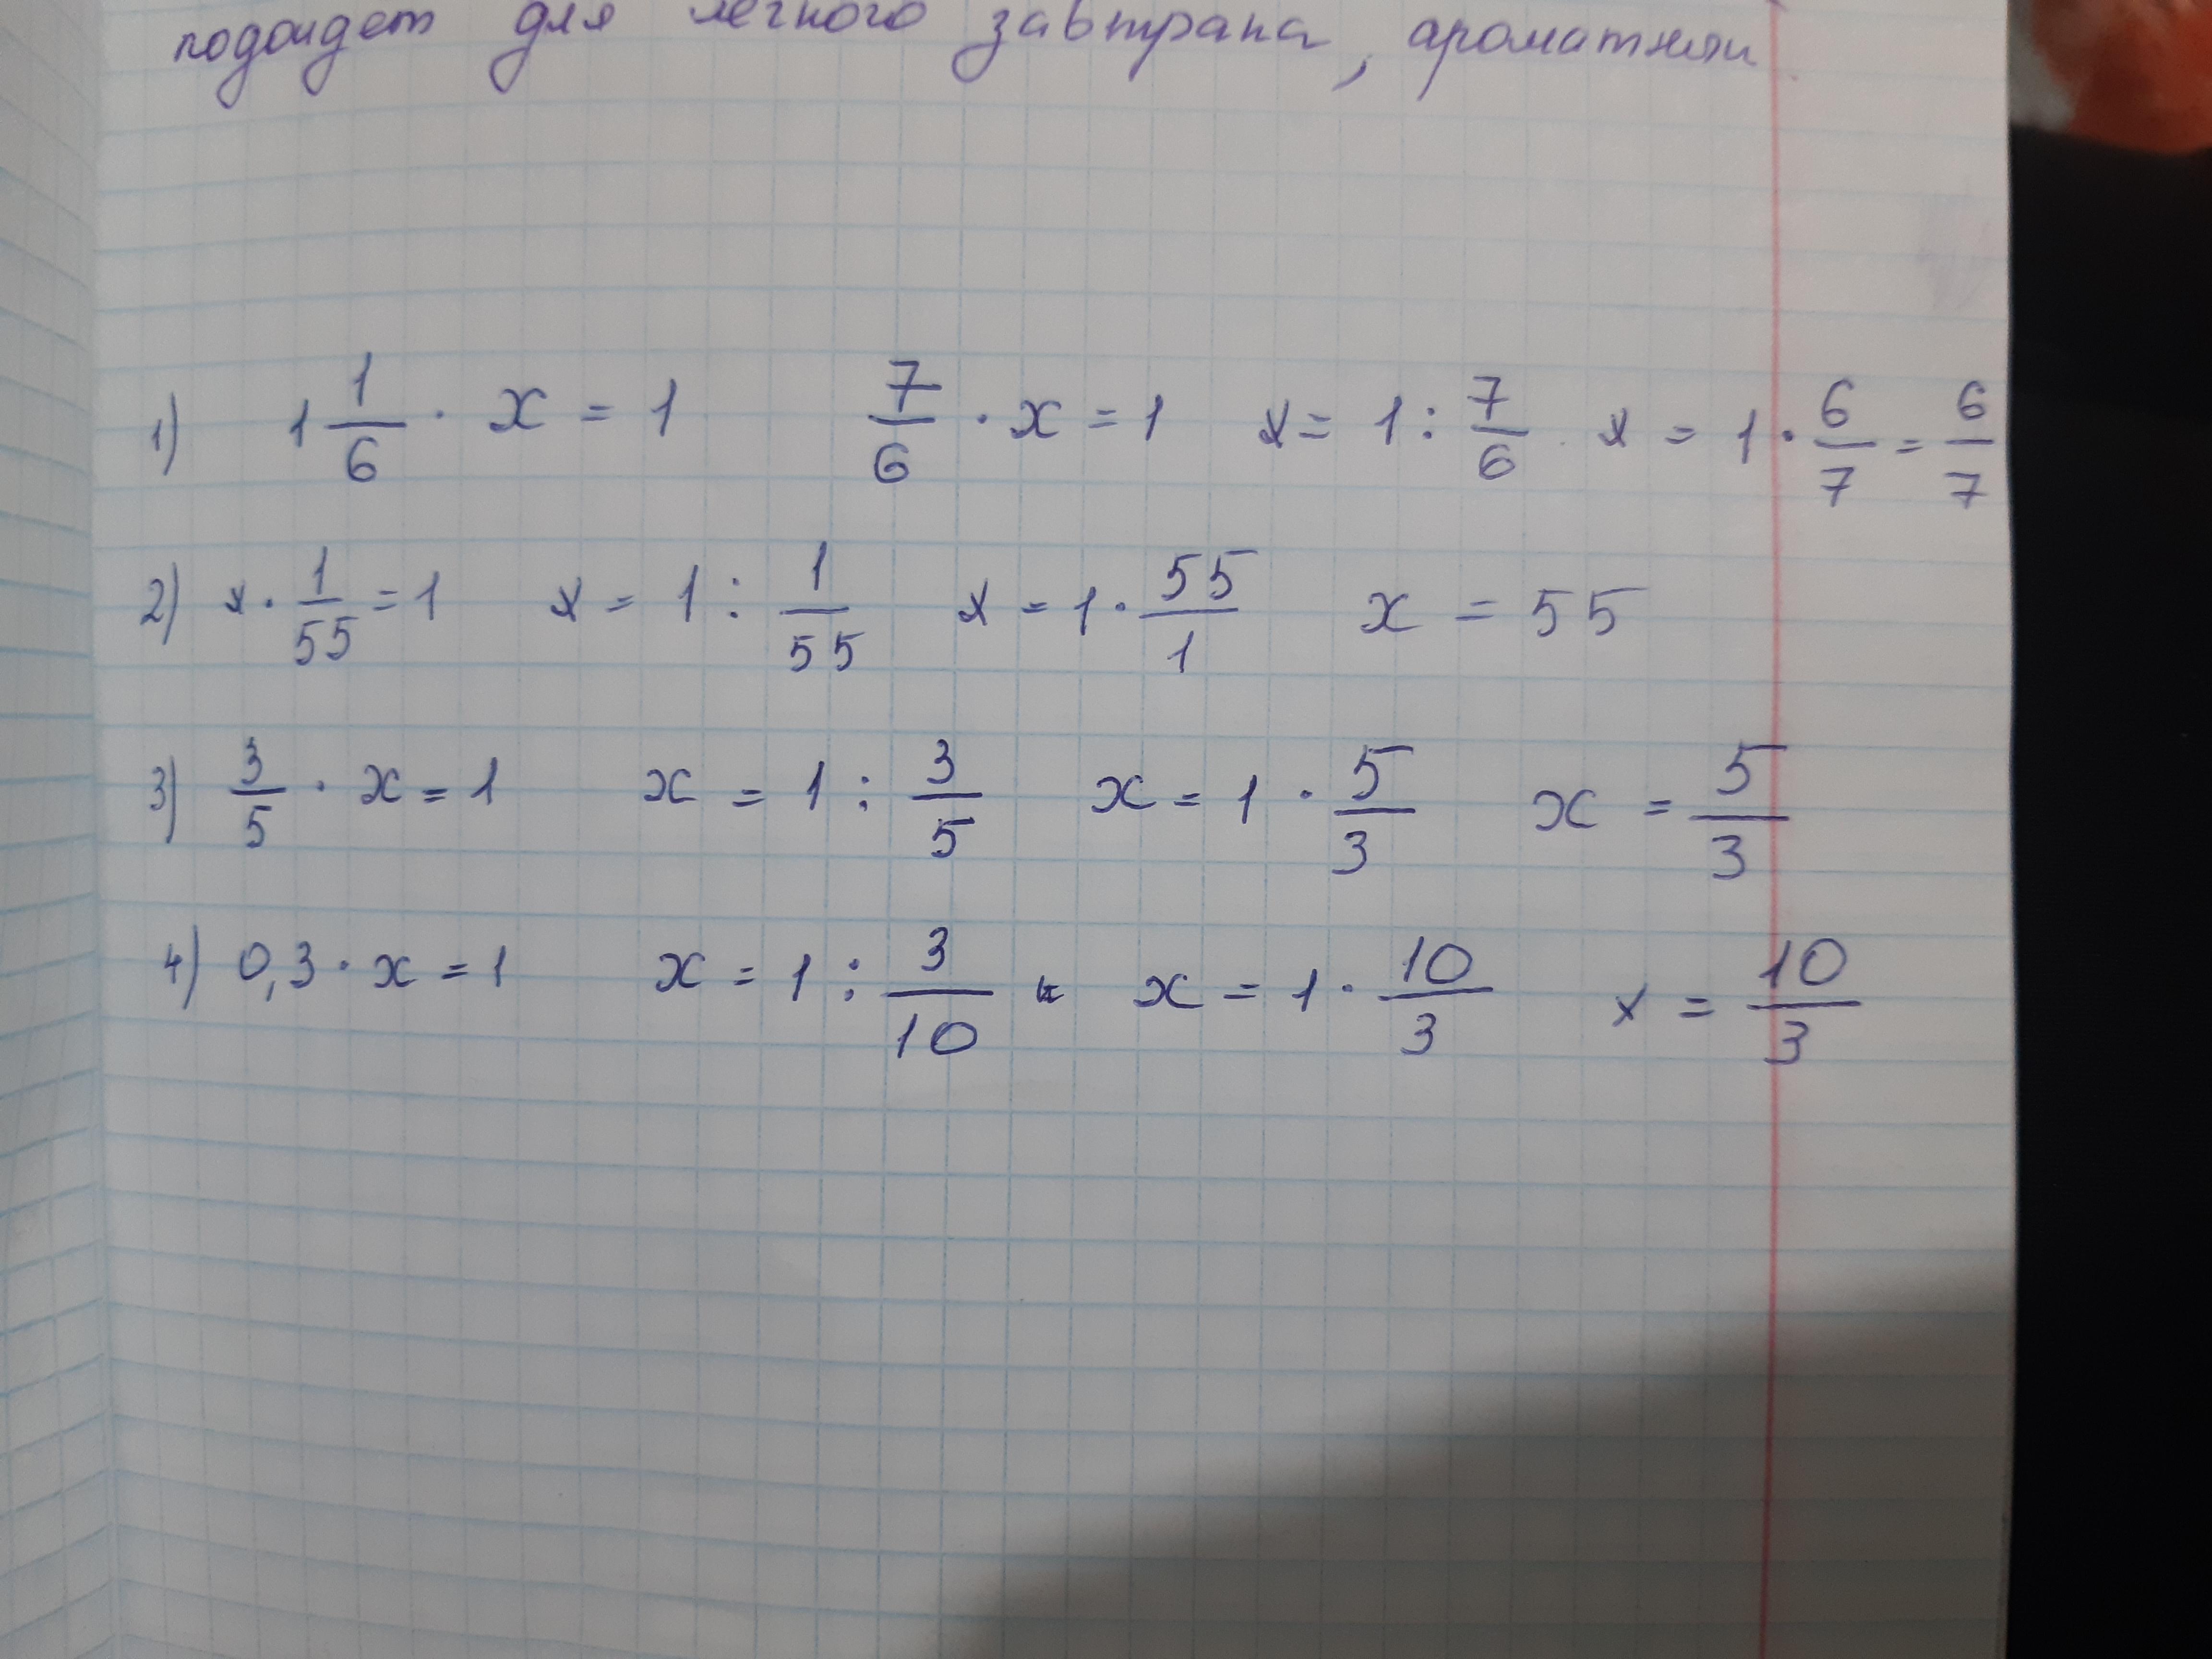 подойдет для легкого завтрака, ароматный
1) 1 1/6 · x = 1 7/6 · x = 1 x = 1 : 7/6 x = 1 · 6/7 = 6/7
2) x · 1/55 = 1 x = 1 : 1/55 x = 1 · 55/1 x = 55
3) 3/5 · x = 1 x = 1 : 3/5 x = 1 · 5/3 x = 5/3
4) 0,3 · x = 1 x = 1 : 3/10 x = 1 · 10/3 x = 10/3